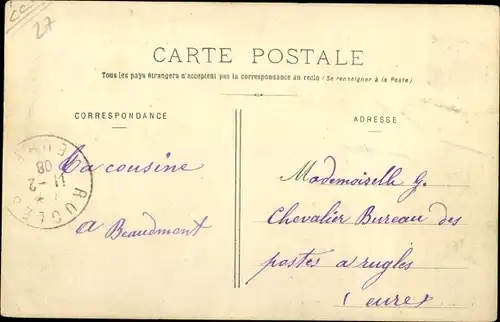 CC
27
CARTE POSTALE
Tous les pays étrangers n'acceptent pas la correspondance au recto (Se renseigner à la Poste)
CORRESPONDANCE
ADRESSE
Ta cousine
A Beaudmont
Mademoiselle G.
Chevalier Bureau des
postes a rugles
(eure)
RUGLES
11 - 2
08
EURE